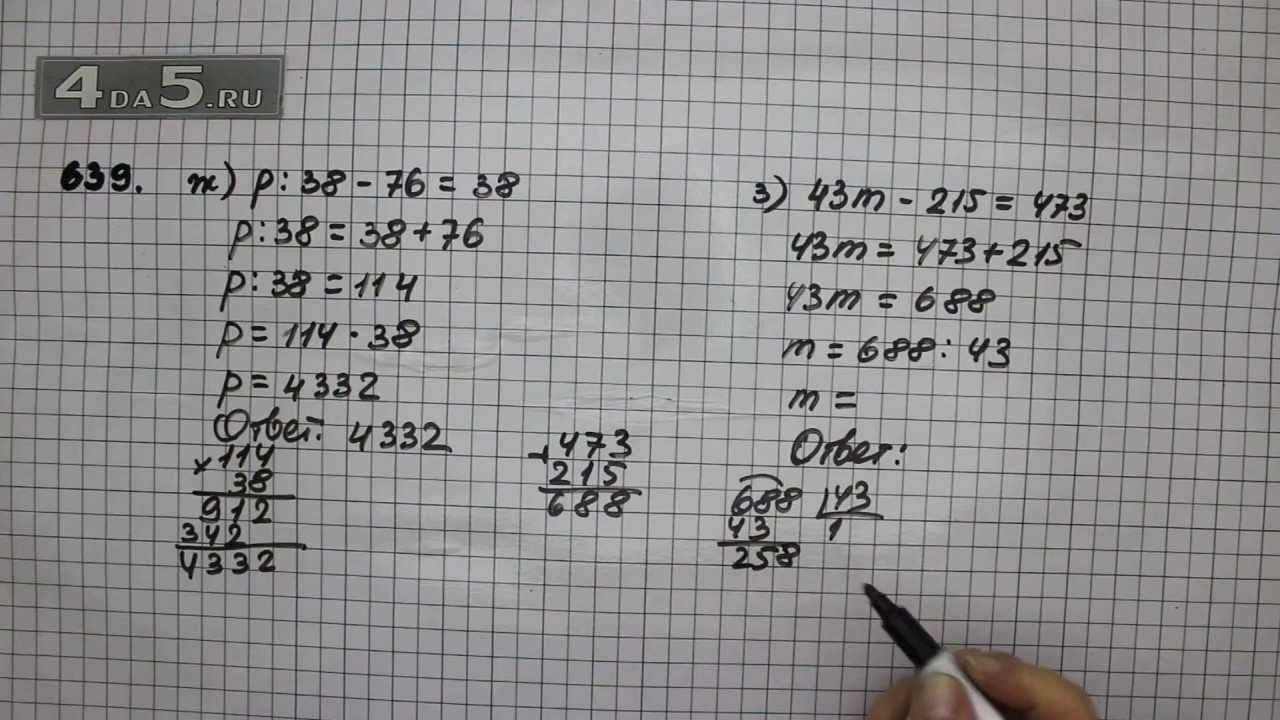 4DA5.RU
639. ж) p : 38 - 76 = 38
p : 38 = 38 + 76
p : 38 = 114
p = 114 · 38
p = 4332
Ответ: 4332
×114
38
912
342
4332
+473
215
688
з) 43m - 215 = 473
43m = 473 + 215
43m = 688
m = 688 : 43
m =
Ответ:
688 43
43 1
258